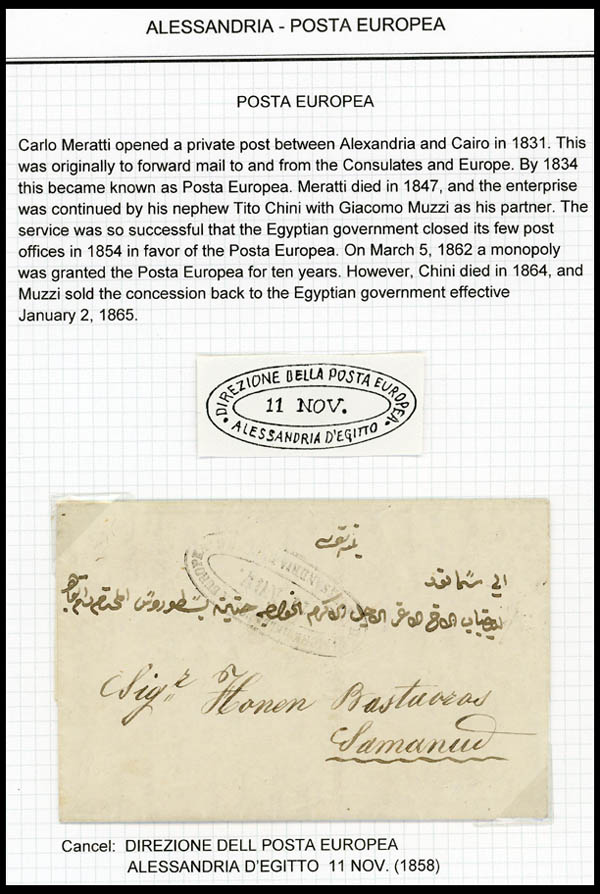 ALESSANDRIA - POSTA EUROPEA
POSTA EUROPEA
Carlo Meratti opened a private post between Alexandria and Cairo in 1831. This
was originally to forward mail to and from the Consulates and Europe. By 1834
this became known as Posta Europea. Meratti died in 1847, and the enterprise
was continued by his nephew Tito Chini with Giacomo Muzzi as his partner. The
service was so successful that the Egyptian government closed its few post
offices in 1854 in favor of the Posta Europea. On March 5, 1862 a monopoly
was granted the Posta Europea for ten years. However, Chini died in 1864, and
Muzzi sold the concession back to the Egyptian government effective
January 2, 1865.
DIREZIONE DELLA POSTA EUROPEA
11 NOV.
ALESSANDRIA D'EGITTO
الى سمانود
الاجل الاكرم الخواجه
Sig.r Honen Bastavros
Samanud
Cancel: DIREZIONE DELL POSTA EUROPEA
ALESSANDRIA D'EGITTO 11 NOV. (1858)